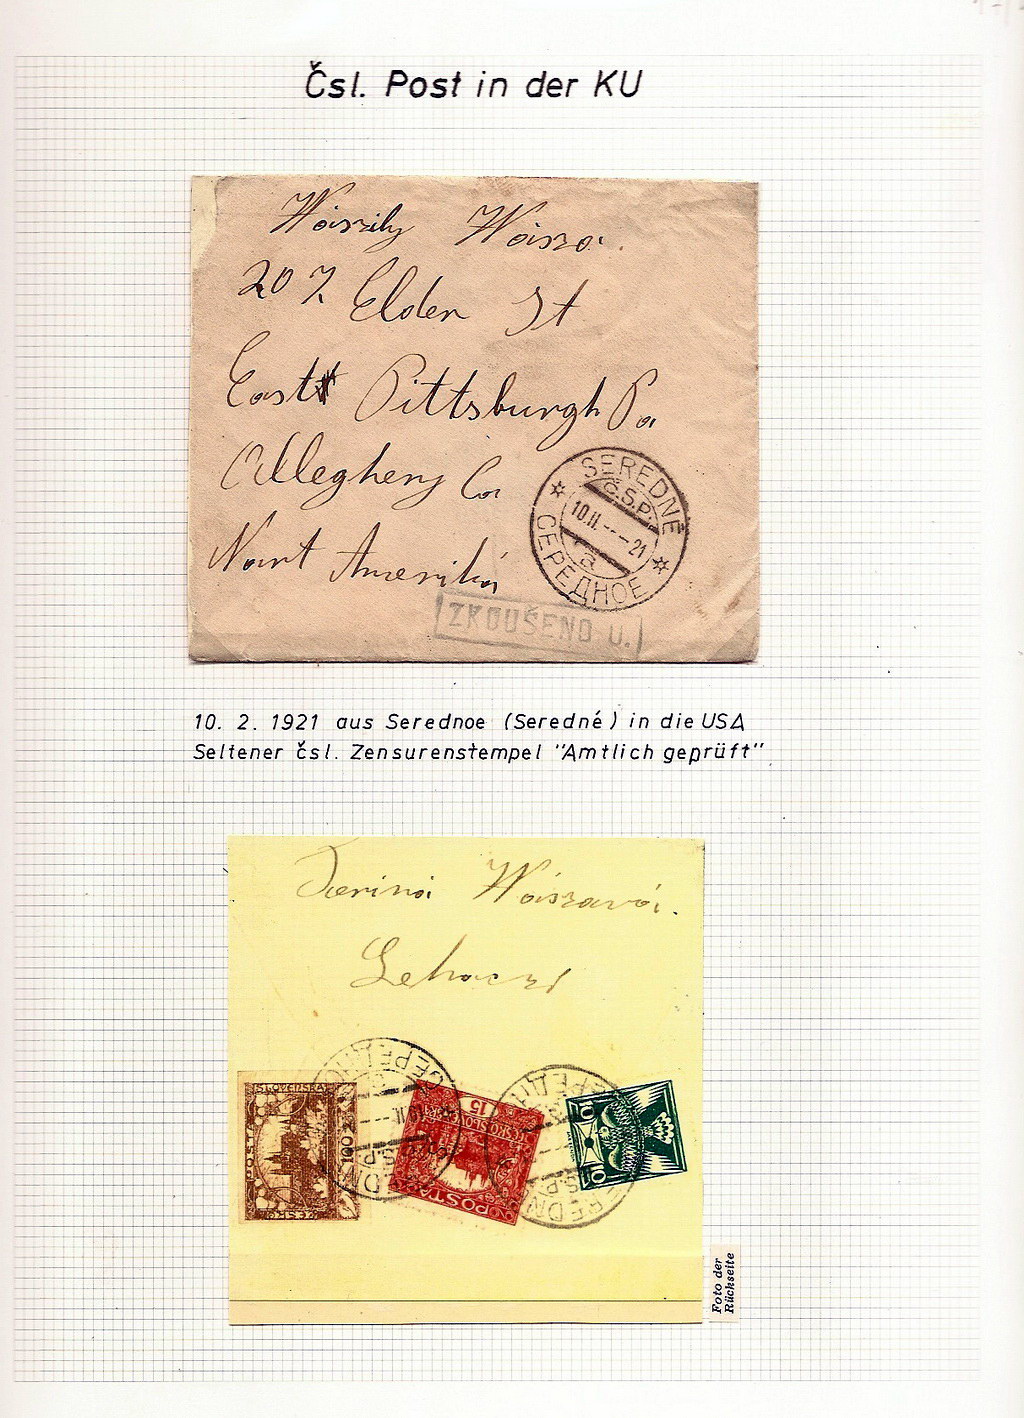 Čsl. Post in der KU
Wáiszily Wáisza.
207. Elden St
East Pittsburgh Pa
Allegheny Co
Nort Amerika
SEREDNÉ
Č.S.P.
10.II.---21
a
СЕРЕДНОЕ
ZKOUŠENO U.
10. 2. 1921 aus Serednoe (Seredné) in die USA
Seltener čsl. Zensurenstempel "Amtlich geprüft"
Lehoczi
SLOVENSKÁ
POŠTA
100
15
10
10
Foto der
Rückseite